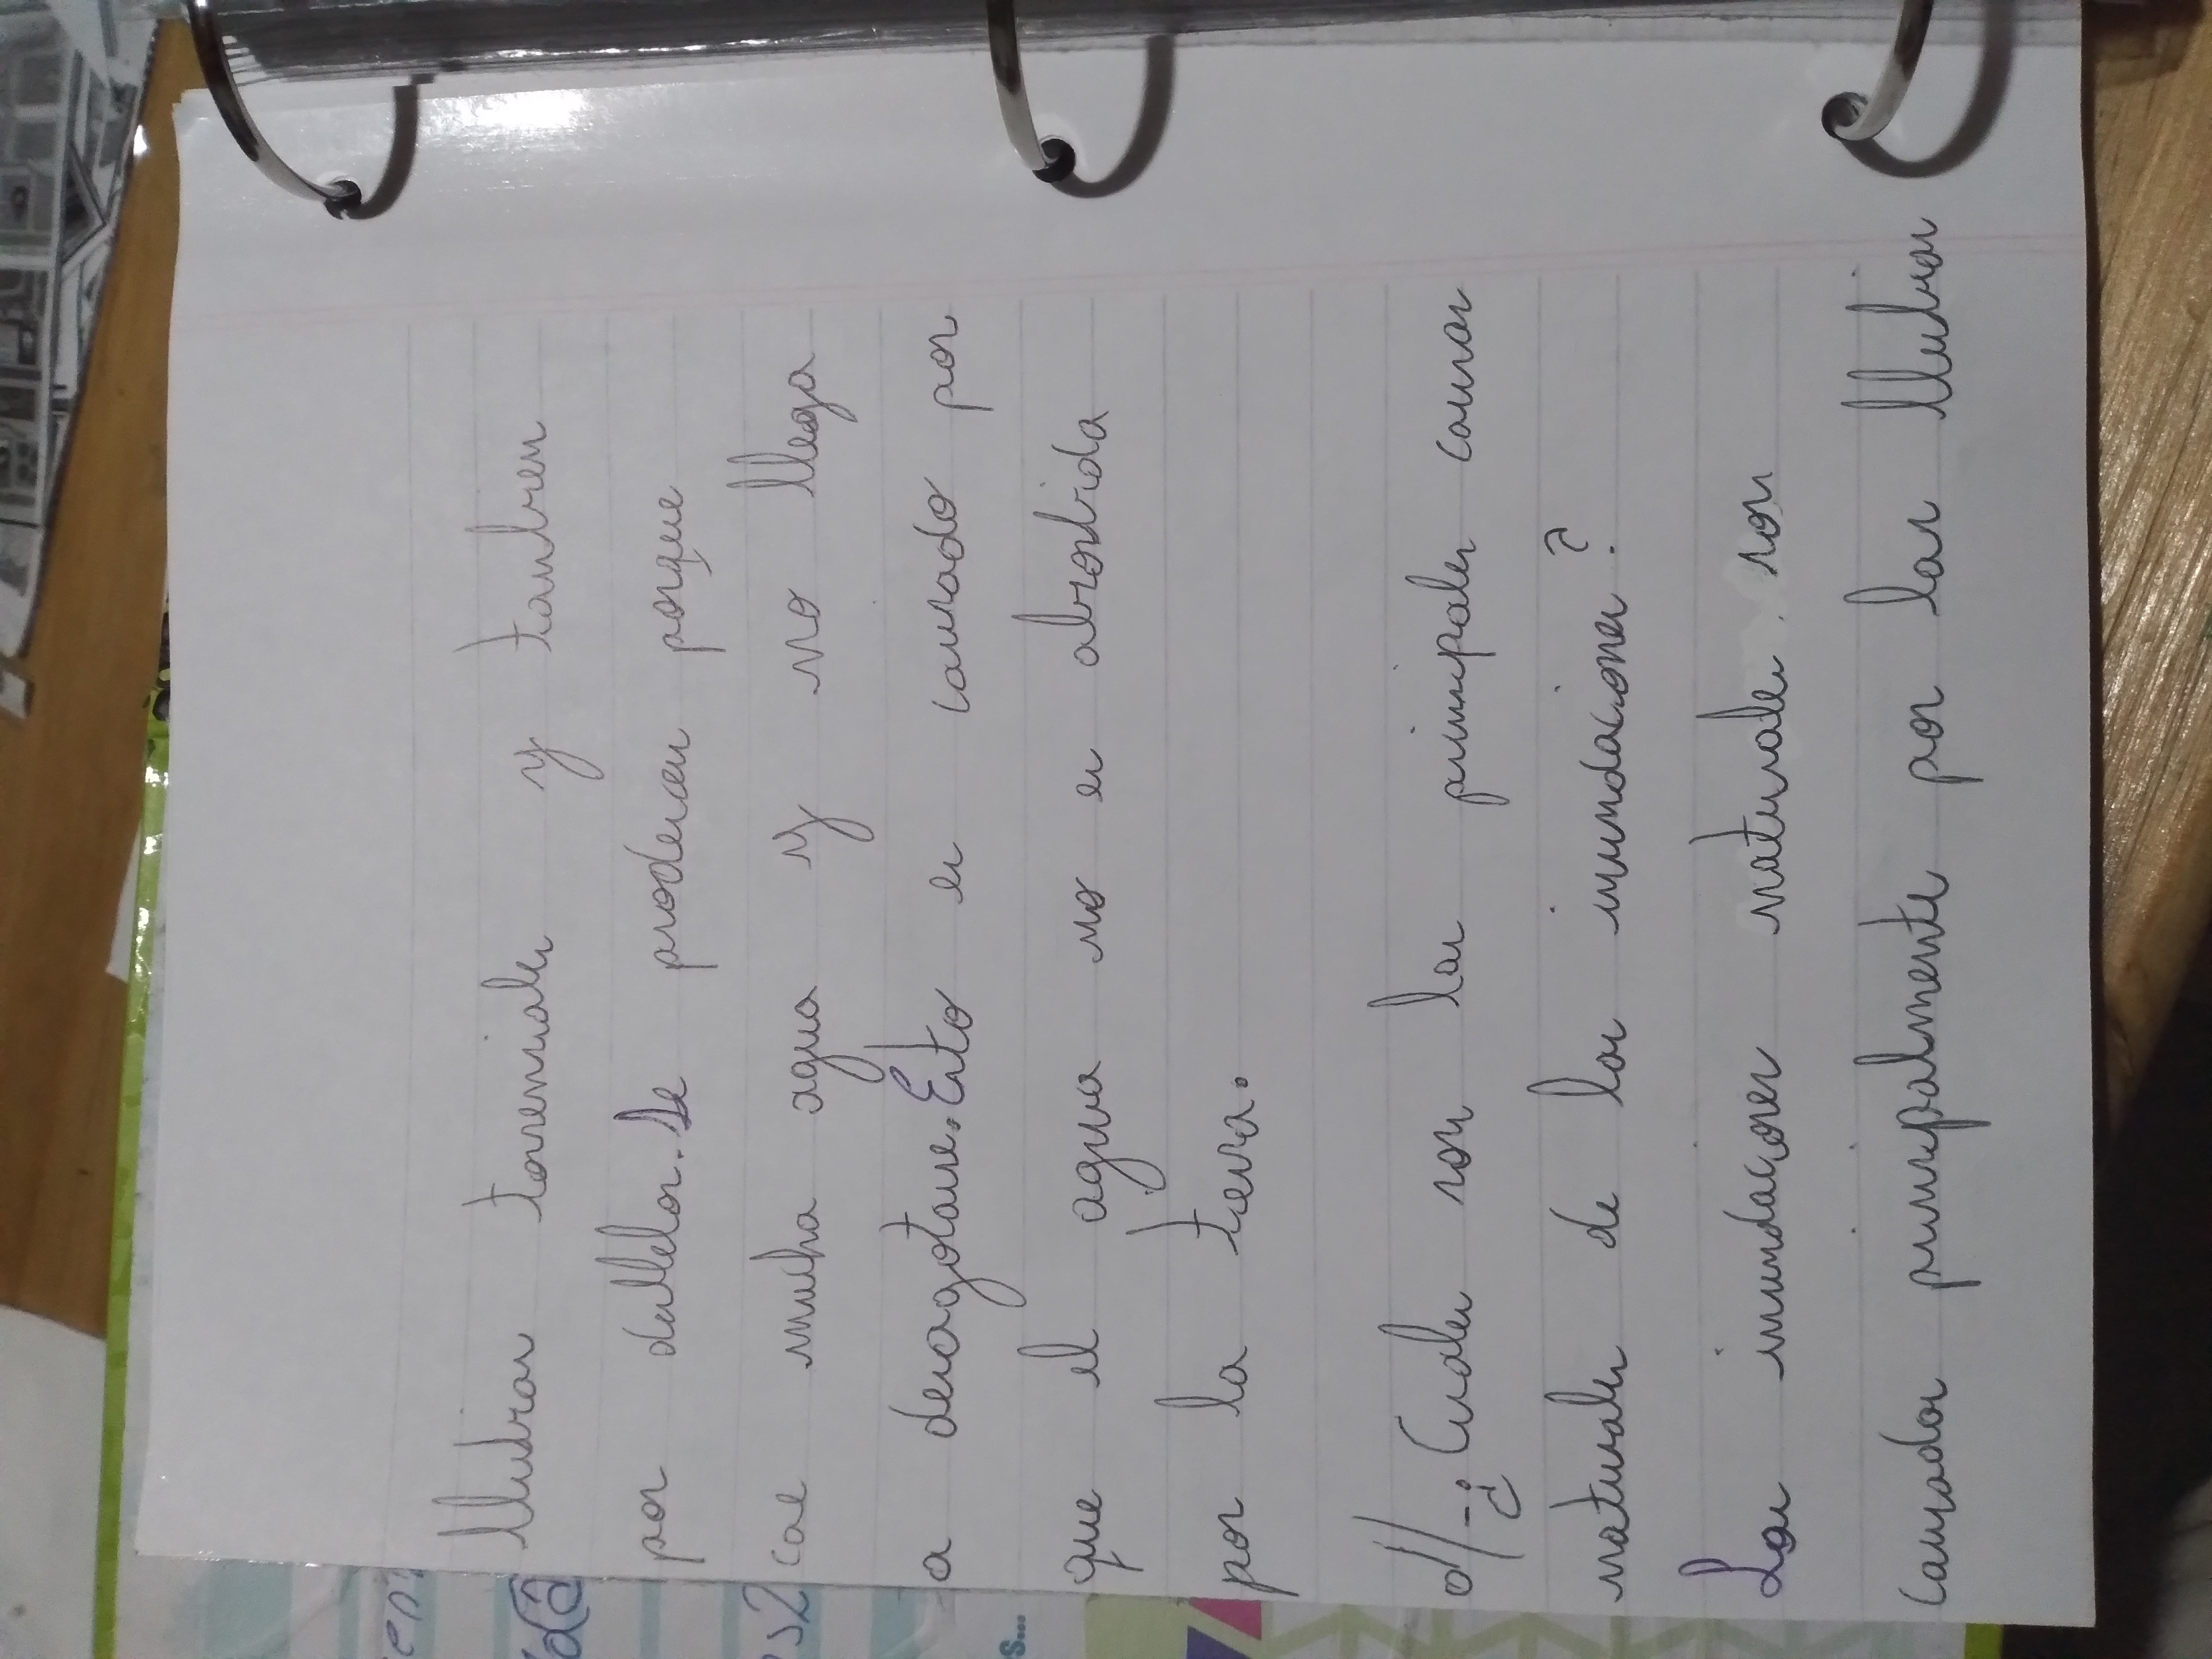 llubias torenciales y tambien
por deshielos. Se producen porque
cae mucha agua y no llega
a desagotarse. Esto es causado por
que el agua no es absorbida
por la tierra.
d//- ¿Cuales son las principales causas
naturales de las inundaciones?
Las inundaciones naturales son
causadas principalmente por las lluvias
s2
s...